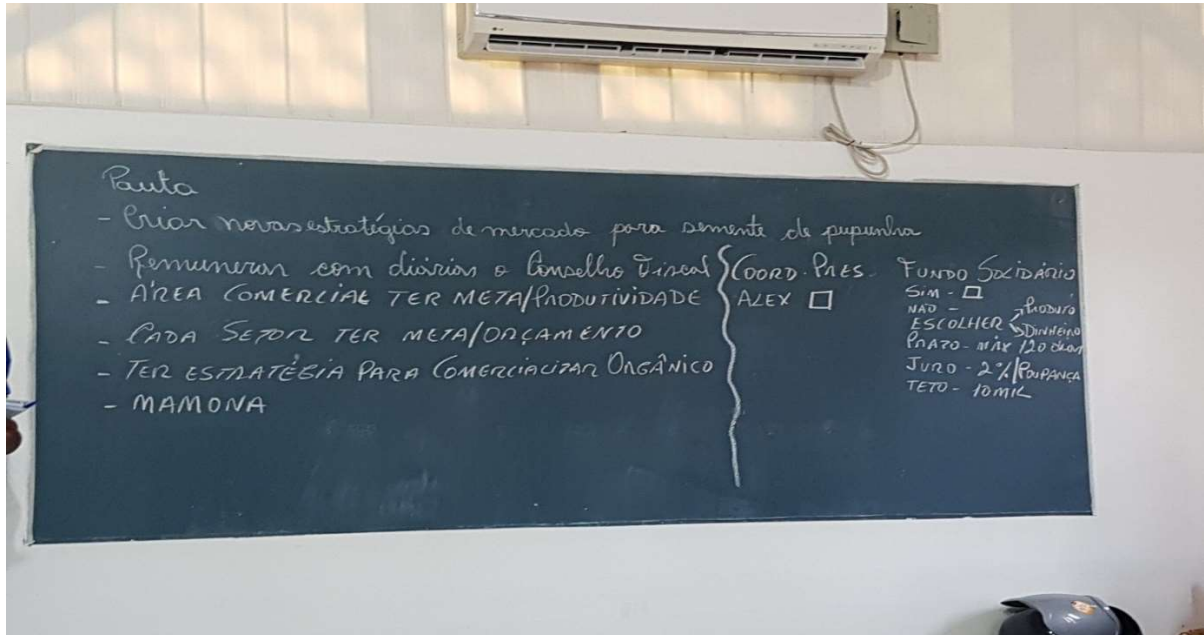 Pauta
- Criar novas estratégias de mercado para semente de pupunha
- Remunerar com diárias o Conselho Fiscal
- ÁREA COMERCIAL TER META/PRODUTIVIDADE
- CADA SETOR TER META/ORÇAMENTO
- TER ESTRATÉGIA PARA COMERCIALIZAR ORGÂNICO
- MAMONA
COORD. PRES.
ALEX □
FUNDO SOLIDÁRIO
SIM - □
NÃO -
ESCOLHER PRODUTO
DINHEIRO
PRAZO - MÁX 120 dias
JURO - 2%/POUPANÇA
TETO - 10MIL
LG